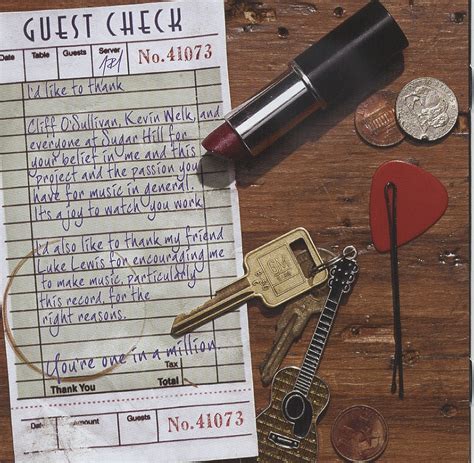 GUEST CHECK
Date Table Guests Server No. 41073
I'd like to thank
Cliff O'Sullivan, Kevin Welk, and
everyone at Sugar Hill for
your belief in me and this
project and the passion you
have for music in general.
It's a joy to watch you work.
I'd also like to thank my friend
Luke Lewis for encouraging me
to make music, particularly
this record, for the
right reasons.
You're one in a million
Tax
Thank You Total
Date Amount Guests No. 41073